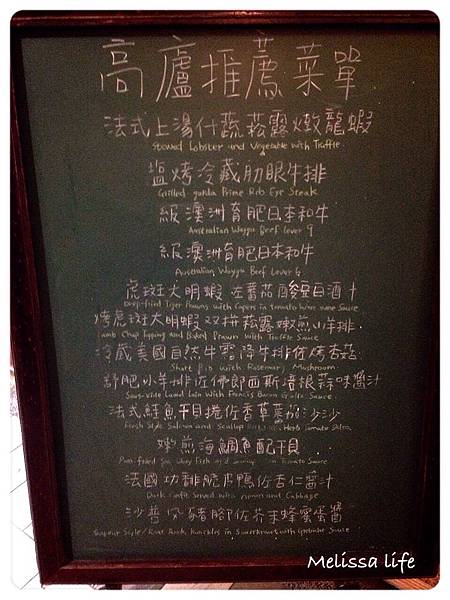 高廬推薦菜單
法式上湯什蔬菘露燉龍蝦
Stewed Lobster and Vegetable with Truffle
塩烤冷藏肋眼牛排
Grilled Prime Rib Eye Steak
級澳洲育肥日本和牛
Australian Wagyu Beef Lover 9
級澳洲育肥日本和牛
Australian Wagyu Beef Lover 6
虎斑大明蝦佐蕃茄酸豆白酒汁
Deep-fried Tiger Prawns with Capers in tomato Wine Sauce
烤虎斑大明蝦双拼菘露嫩煎小羊排
Lamb Chop Topping and Baked Prawn with Truffle Sauce
冷藏美國自然牛雪降牛排佐烤杏菇
Short Rib with Rosemary Mushroom
舒肥小羊排佐佛郎西斯培根蒜味醬汁
Sous-vide Lamb Loin With Francis Bacon Sauce
法式鮭魚干貝捲佐香草蕃茄沙沙
French Style Salmon and Scallop Herb Tomato Salsa
嫩煎海鯛魚配干貝
Pan-fried Fish and Tomato Sauce
法國功夫脆皮鴨佐杏仁醬汁
Duck Confit Served with and Cabbage
沙普風豬腳佐芥末蜂蜜蛋醬
Style Roast Pork Knuckles in Sauerkraut with Sauce
Melissa life